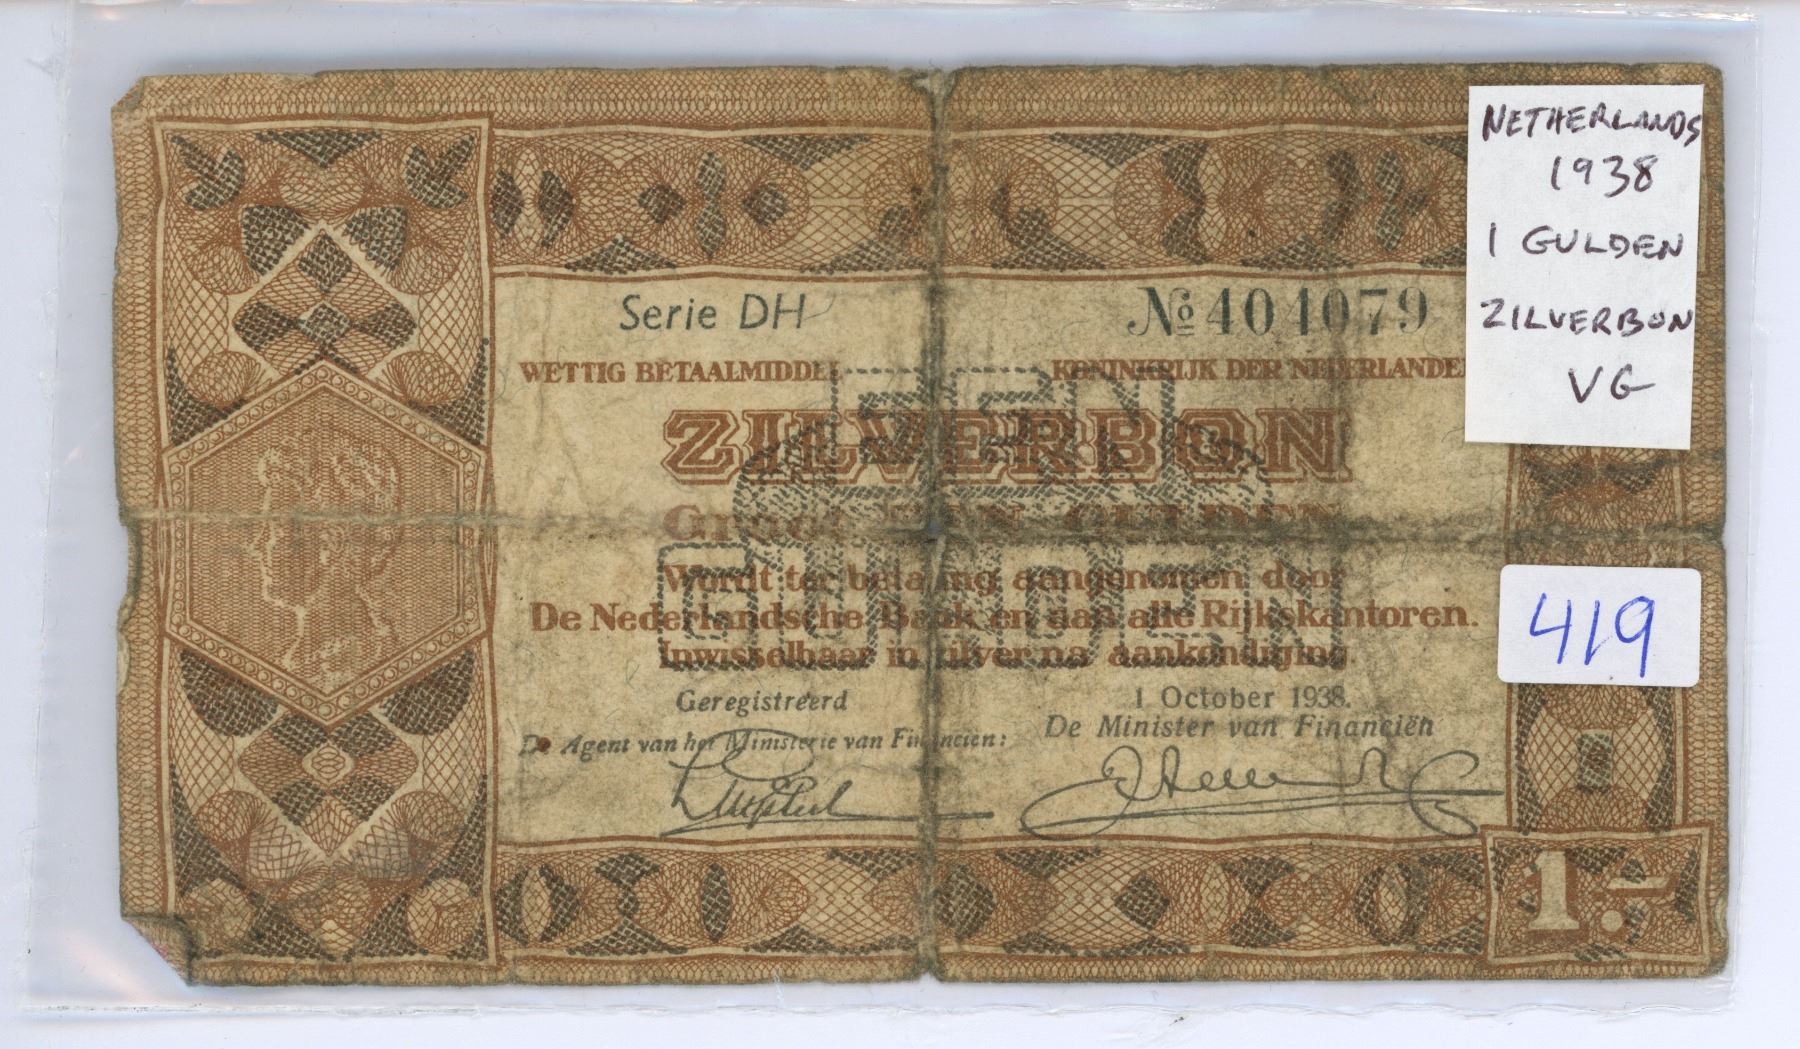 NETHERLANDS
1938
1 GULDEN
ZILVERBON
VG
419
Serie DH
№ 404079
WETTIG BETAALMIDDEL
KONINKRIJK DER NEDERLANDE
ZILVERBON
Groot EEN GULDEN
EEN
GULDEN
Wordt ter betaling aangenomen door
De Nederlandsche Bank en aan alle Rijkskantoren.
Inwisselbaar in zilver na aankondiging.
Geregistreerd
De Agent van het Ministerie van Financiën:
1 October 1938.
De Minister van Financiën
1.—